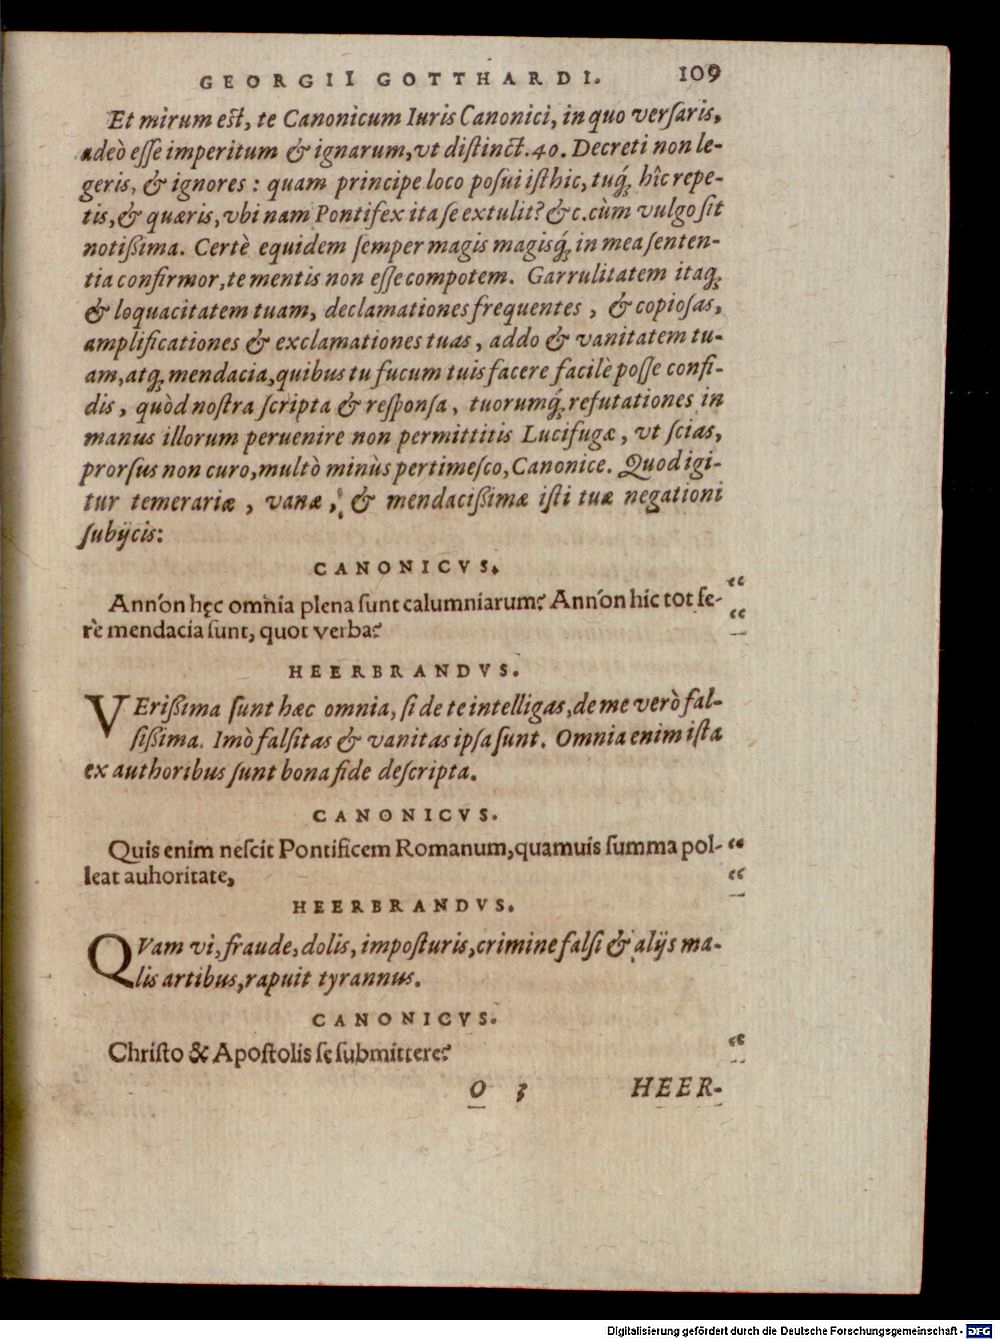 GEORGII GOTTHARDI. 109
Et mirum est, te Canonicum Iuris Canonici, in quo versaris,
adeò esse imperitum & ignarum, vt distinct. 40. Decreti non le-
geris, & ignores : quam principe loco posui isthic, tuq́; hîc repe-
tis, & quæris, vbi nam Pontifex ita se extulit? &c. cùm vulgo sit
notißima. Certè equidem semper magis magisq́; in mea senten-
tia confirmor, te mentis non esse compotem. Garrulitatem itaq;
& loquacitatem tuam, declamationes frequentes , & copiosas,
amplificationes & exclamationes tuas , addo & vanitatem tu-
am, atq; mendacia, quibus tu fucum tuis facere facilè posse confi-
dis , quòd nostra scripta & responsa , tuorumq́; refutationes in
manus illorum peruenire non permittitis Lucifugæ , vt scias,
prorsus non curo, multò minùs pertimesco, Canonice. Quod igi-
tur temerariæ , vanæ , & mendacißimæ isti tuæ negationi
subijcis:
CANONICVS.
Annón hęc omnia plena sunt calumniarum? Annón hic tot fe- “
rè mendacia sunt, quot verba? “
HEERBRANDVS.
VErißima sunt hæc omnia, si de te intelligas, de me verò fal-
sißima. Imò falsitas & vanitas ipsa sunt. Omnia enim ista
ex authoribus sunt bona fide descripta.
CANONICVS.
Quis enim nescit Pontificem Romanum, quamuis summa pol- “
leat auhoritate, “
HEERBRANDVS.
QVam vi, fraude, dolis, imposturis, crimine falsi & alijs ma-
lis artibus, rapuit tyrannus.
CANONICVS.
Christo & Apostolis se submittere? “
O 3 HEER-
Digitalisierung gefördert durch die Deutsche Forschungsgemeinschaft - DFG